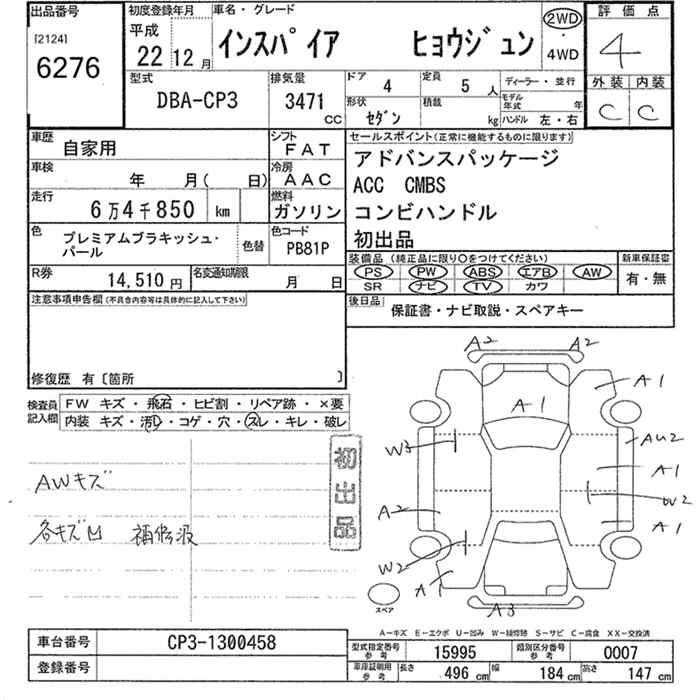 出品番号
[2124]
6276
初度登録年月
平成
22年12月
車名・グレード
インスパイア ヒョウジュン
2WD
・
4WD
評価点
4
外装 内装
C C
型式
DBA-CP3
排気量
3471
CC
ドア
4
定員
5人
ディーラー・並行
形状
セダン
積載
kg
モデル年式 年
ハンドル 左・右
車歴
自家用
シフト
FAT
車検
年 月( 日)
冷房
AAC
走行
6万4千850 km
燃料
ガソリン
色
プレミアムブラキッシュ・
パール
色替
色コード
PB81P
R券
14,510円
名変通知期限
月 日
セールスポイント(正常に機能するものに限ります)
アドバンスパッケージ
ACC CMBS
コンビハンドル
初出品
装備品(純正品に限り〇をつけてください)
PS PW ABS エアB AW
SR ナビ TV カワ
新車保証書
有・無
後日品
保証書・ナビ取説・スペアキー
注意事項申告欄(不具合内容等は具体的に記入して下さい)
修復歴 有〔箇所 〕
検査員
記入欄
FW キズ・飛石・ヒビ割・リペア跡・×要
内装 キズ・汚レ・コゲ・穴・スレ・キレ・破レ
初出品
AWキズ
各キズ凹 補修波
A2 A2
A1
A1
W3
AU2
A1
W2
A2
A1
W2
A1
A3
スペア
A-キズ E-エクボ U-凹み W-補修跡 S-サビ C-腐食 XX-交換済
車台番号
CP3-1300458
登録番号
型式指定番号
参考
15995
類別区分番号
参考
0007
車庫証明用
参考
長さ
496 cm
幅
184 cm
高さ
147 cm